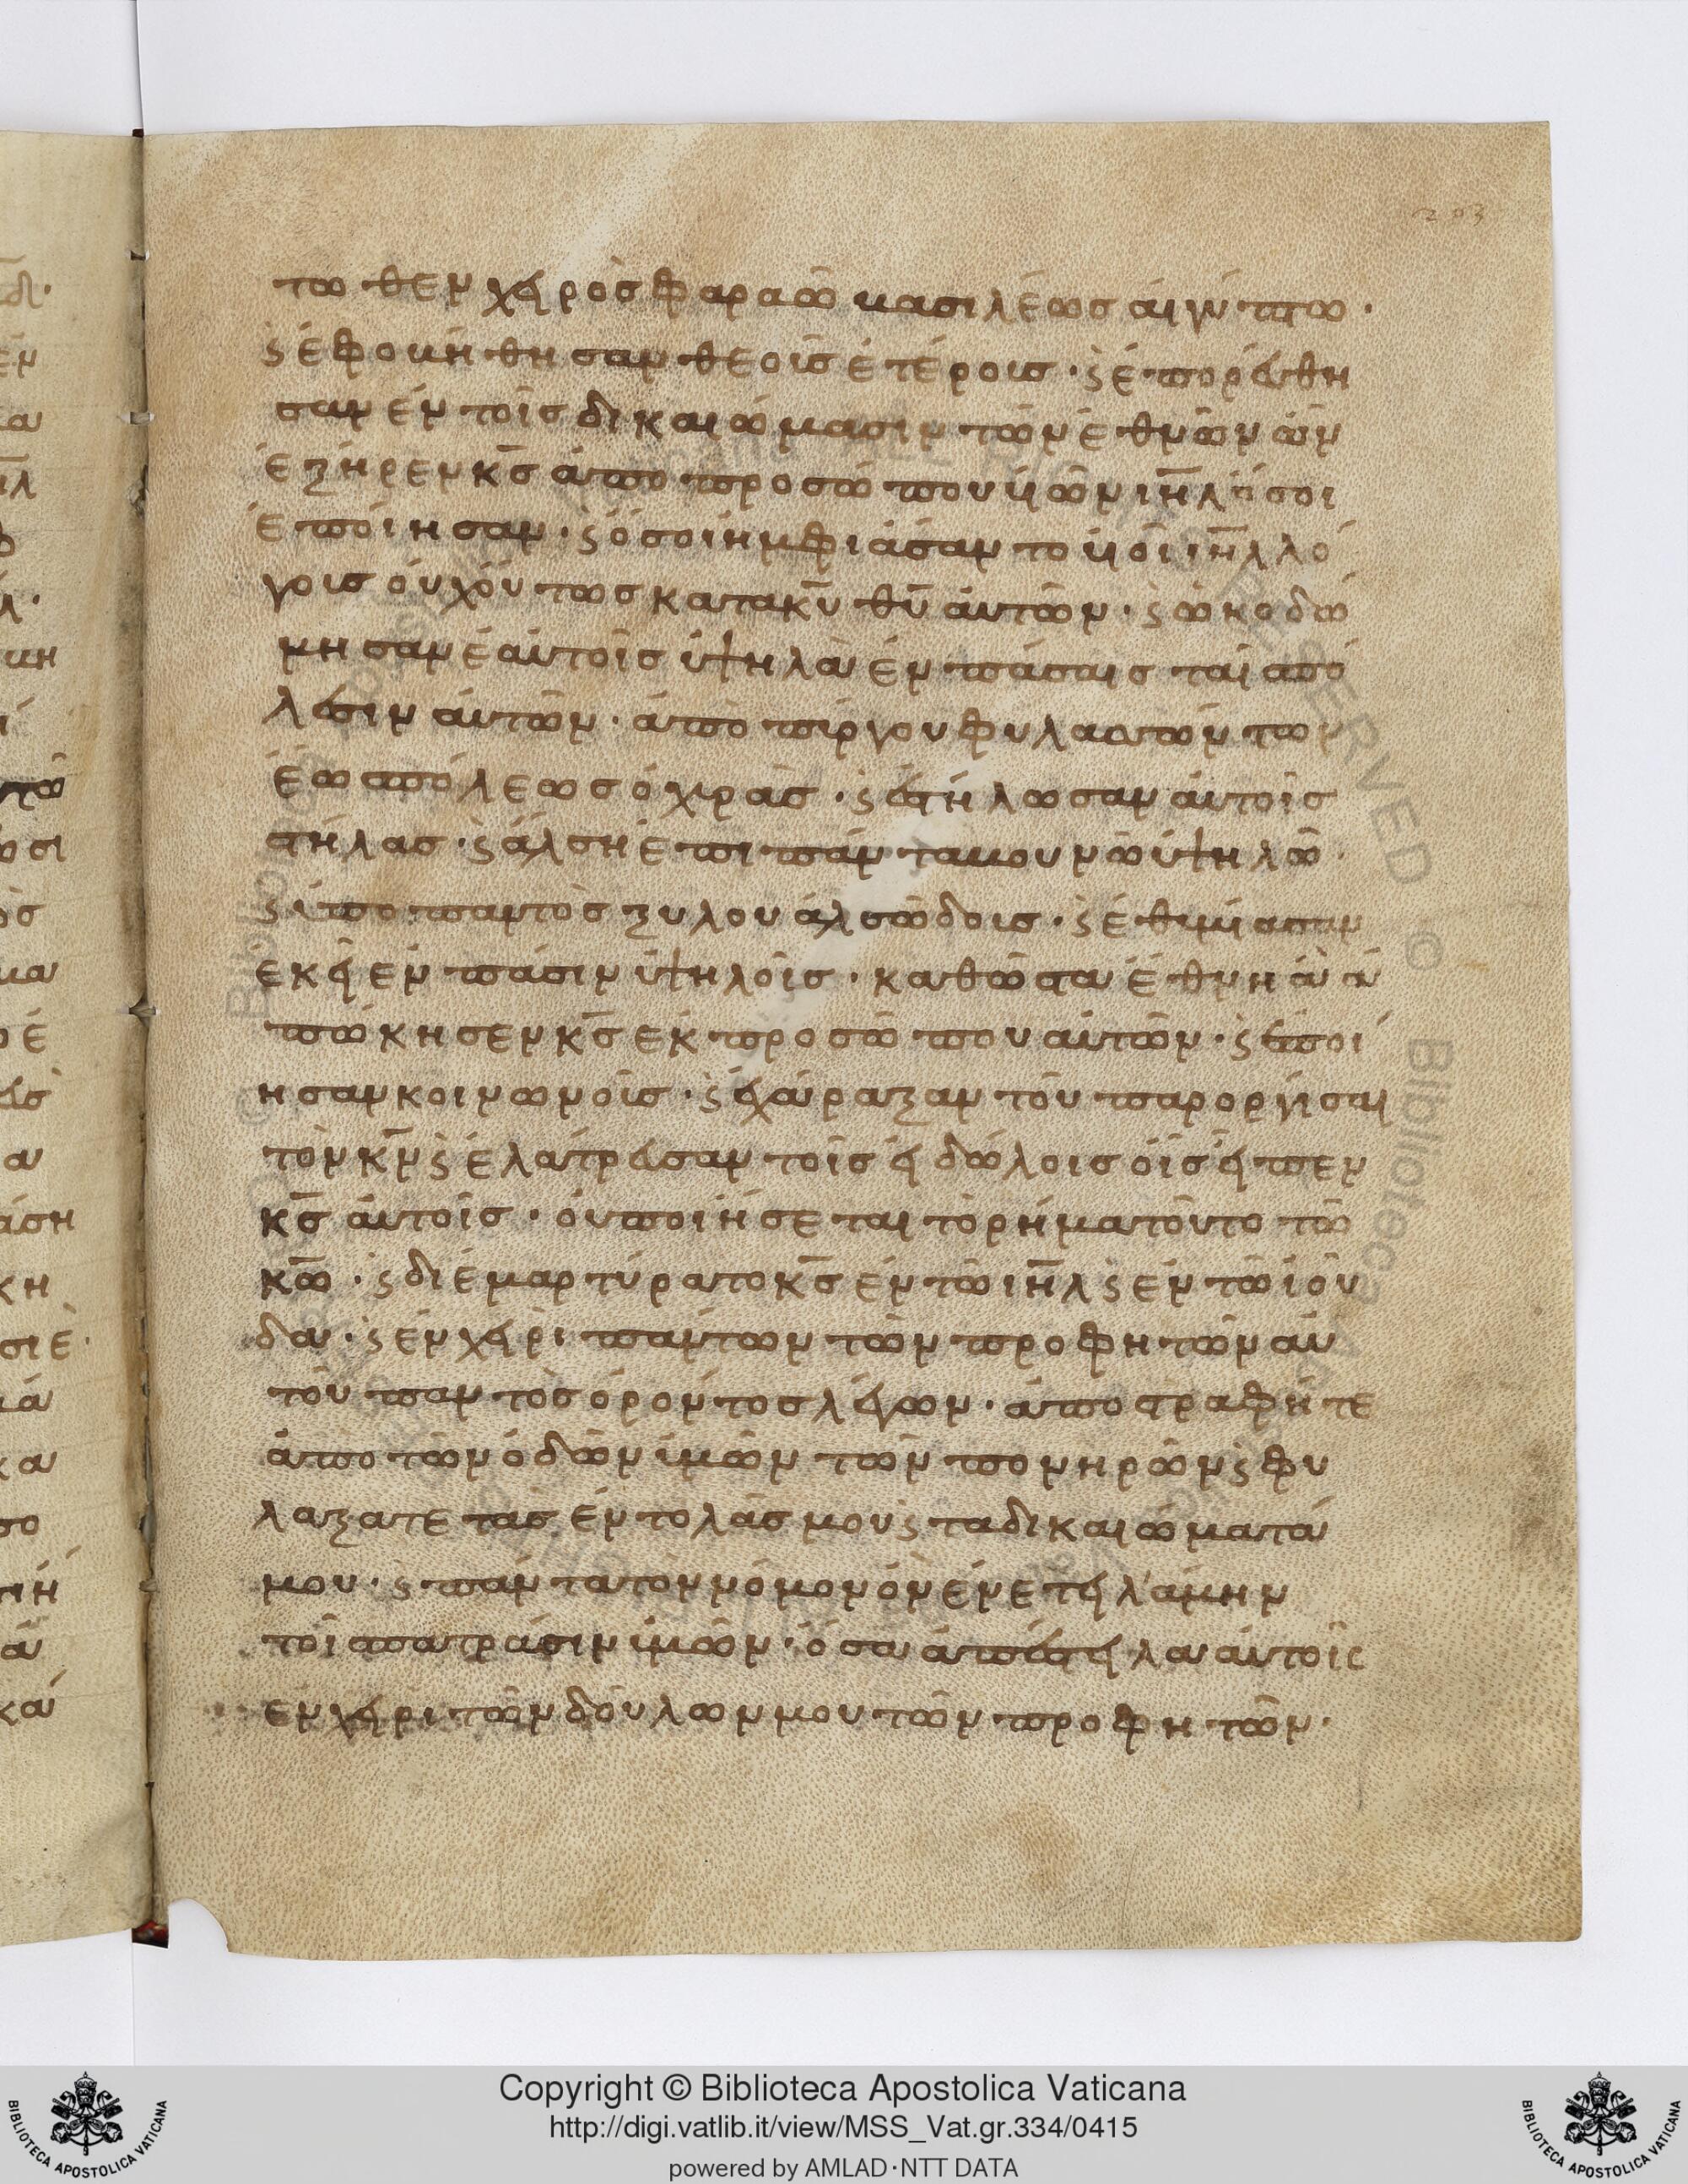 203
τω θεν χειρὸς φαραῶ βασιλέως αἰγύπτω·
ϛ ἐφοβήθησαν θεοῖς ἑτέροις· ϛ ἐπορεύθη
σαν ἐν τοῖς δικαιώμασιν τῶν ἐθνῶν ὧν
ἐξήρεν κς ἀπο προσώπου υἱῶν ιηλ ὅσοι
ἐποίησαν· ϛ ὅσοι ἠμφιάσαν το υἱοῖ ιηλ λό
γοις οὐχ όυτως κατα κν θν ἀυτῶν· ϛ ὠκοδώ
μησαν ἑαυτοῖς ὑψηλὰ ἐν πάσαις ταὶ σπό
λεσιν ἀυτῶν· ἀπὸ πύργου φυλασσών των
ἕω σπόλεως ὀχιρᾶς· ϛ ἐστήλωσαν ἀυτοῖς
στήλας· ϛ ἄλση ἐπι πάν τα βουνῶ ὑψηλῶ·
ϛ ὑπο παντὸς ξυλου ἀλσώδοις· ϛ ἐθυμίασαν
ἐκεῖ ἐν πάσιν ὑψηλοῖς· καθῶς τα ἔθνη ἃ ἀ
πώκησεν κς εκ προσώπου αὐτῶν· ϛ ἐποί
ησαν κοινωνοῖς· ϛ ἐχάραξαν τοῦ παροργίσαι
τὸν κν ϛ ἐλάτρευσαν τοῖς εἰδώλοις οἷς εἶπεν
κς ἀυτοῖς· οὐ ποιήσεται τὸ ρήμα τοῦτο τῶ
κω· ϛ διεμαρτύρατο κς ἐν τῶ ιηλ ϛ ἐν τῶ ἰού
δα· ϛ ἐν χειρὶ πάντων τῶν προφητῶν ἀυ
τοῦ παντὸς ὁροῦντος λέγων· ἀποστραφήτε
ἀπο τῶν ὁδῶν ὑμῶν τῶν πονηρῶν ϛ φυ
λαξατε τὰς ἐντολάς μου ϛ τα δικαιώματά
μου· ϛ πάντα τὸν νόμον ὃν ἐνετειλάμην
τοῖ σπατράσιν ὑμῶν· ὅσα ἀπέστειλα ἀυτοῖς
ἐν χειρὶ τῶν δούλων μου τῶν προφητῶν·
Copyright © Biblioteca Apostolica Vaticana
http://digi.vatlib.it/view/MSS_Vat.gr.334/0415
powered by AMLAD·NTT DATA
BIBLIOTECA APOSTOLICA VATICANA
BIBLIOTECA APOSTOLICA VATICANA